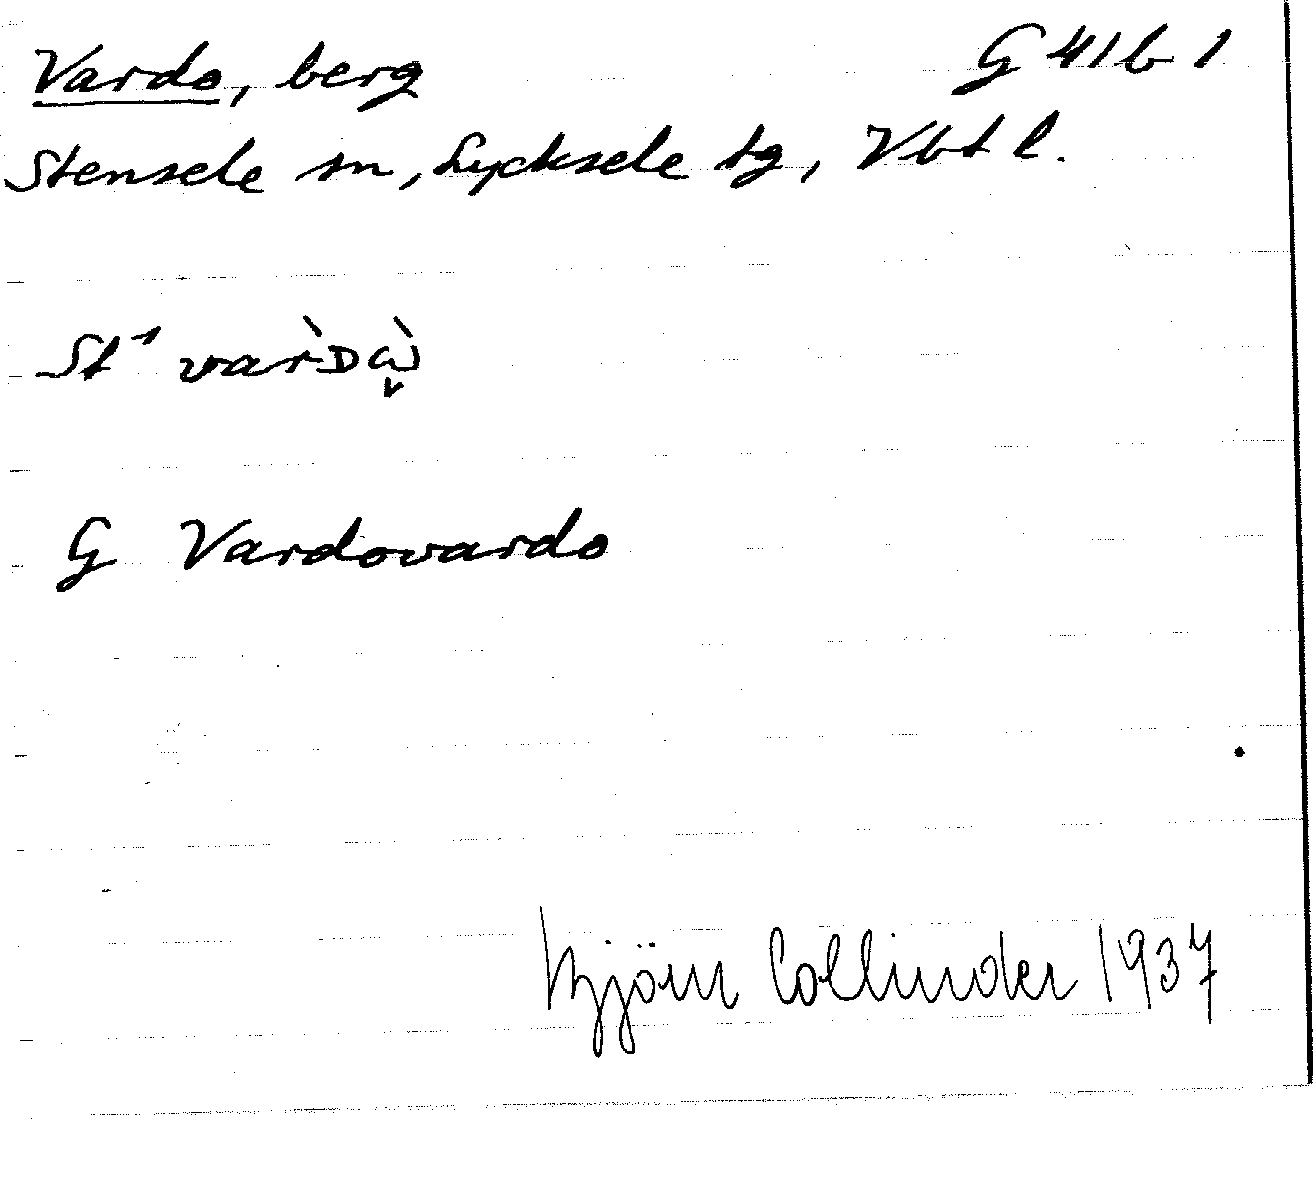 Vardo, berg G 41 b 1
Stensele sn, Lycksele tg, Vbt l.
St⁻¹ var̀ᴅὼ̬
G Vardovardo
Björn Collinder 1937